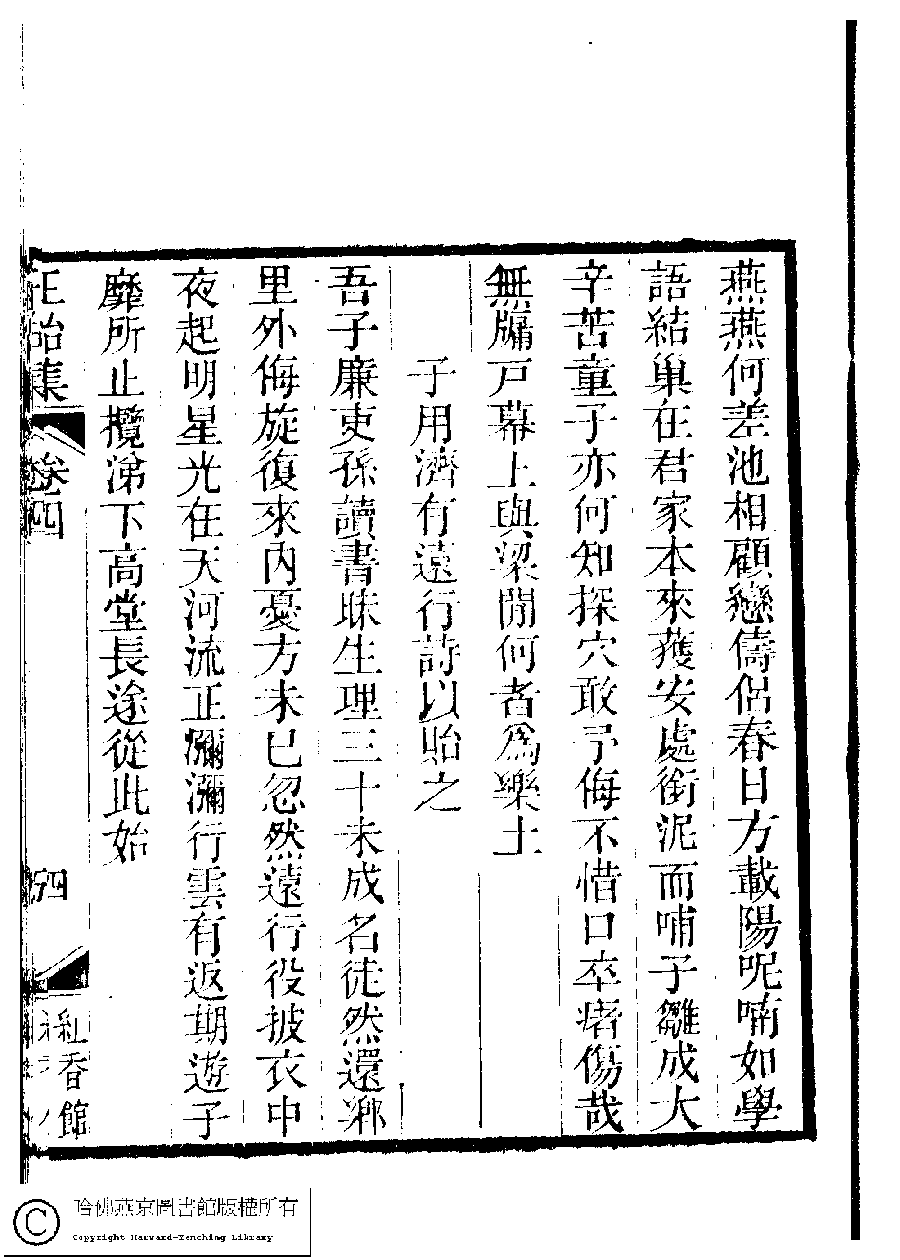 燕燕何差池相顧戀儔侣春日方載陽呢喃如學
語結巢在君家本來獲安處銜泥而哺子雛成大
辛苦童子亦何知探穴敢予侮不惜口卒瘏傷哉
無牖戸幕上與梁閒何者爲樂土
子用濟有遠行詩以貽之
吾子廉吏孫讀書昧生理三十未成名徒然還鄕
里外侮旋復來内憂方未已忽然遠行役披衣中
夜起明星光在天河流正瀰瀰行雲有返期遊子
靡所止攬涕下高堂長途從此始
正始集
卷四
四
紅香館
哈佛燕京圖書館版權所有
Copyright Harvard-Yenching Library